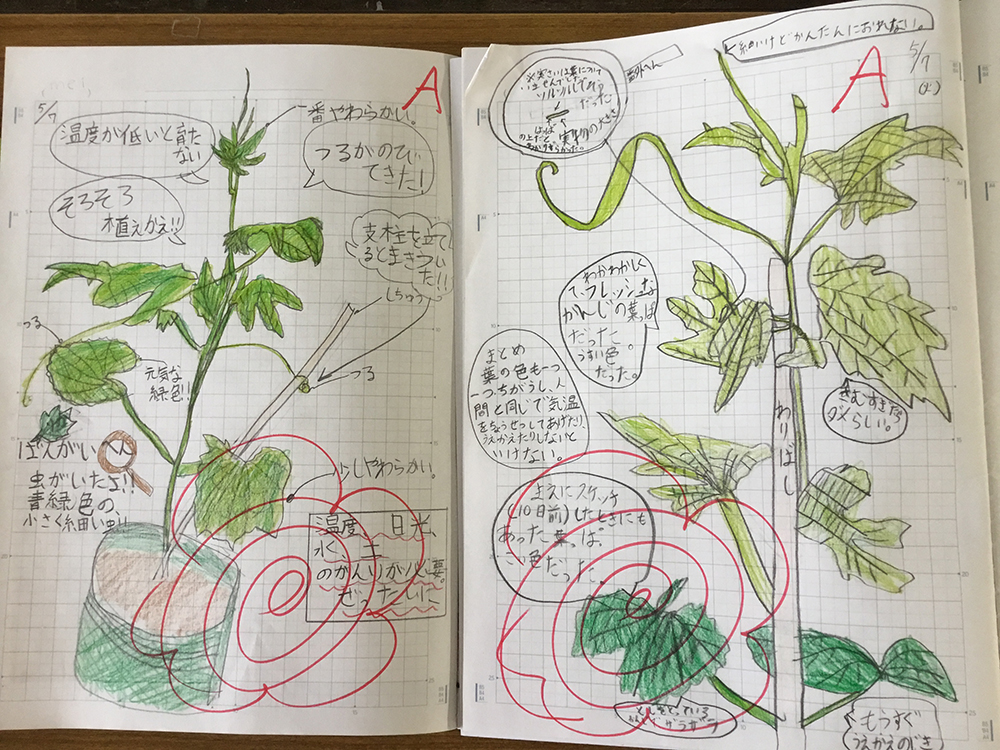 5/7
A
一番やわらかい。
温度が低いと育た
ない
つるがのびて
きた!
そろそろ
植えかえ!!
支柱を立て
ると生きつい
た!!
しちゅう
つる
つる
元気な
緑色!!
はんがいへん
虫がいたよ!!
青緑色の、
小さく細い虫!!
少しやわらかい。
温度 日光
水、土
のかんりが必要。
ぜったいに
細いけどかんたんにおれない。
5/7
A
わかわかしく
て、フレッシュな
かんじの葉っぱ
だった
うすい色。
だった。
まとめ
葉の色も一つ
一つちがうし、人
間と同じで気温
をちょうせつしてあげたり、
うえかえたりしないと
いけない。
まえにスケッチ
(10日前)したときにも
あった葉っぱは、
こい色だった。
わりばし
もうすぐ
うえかえのじき